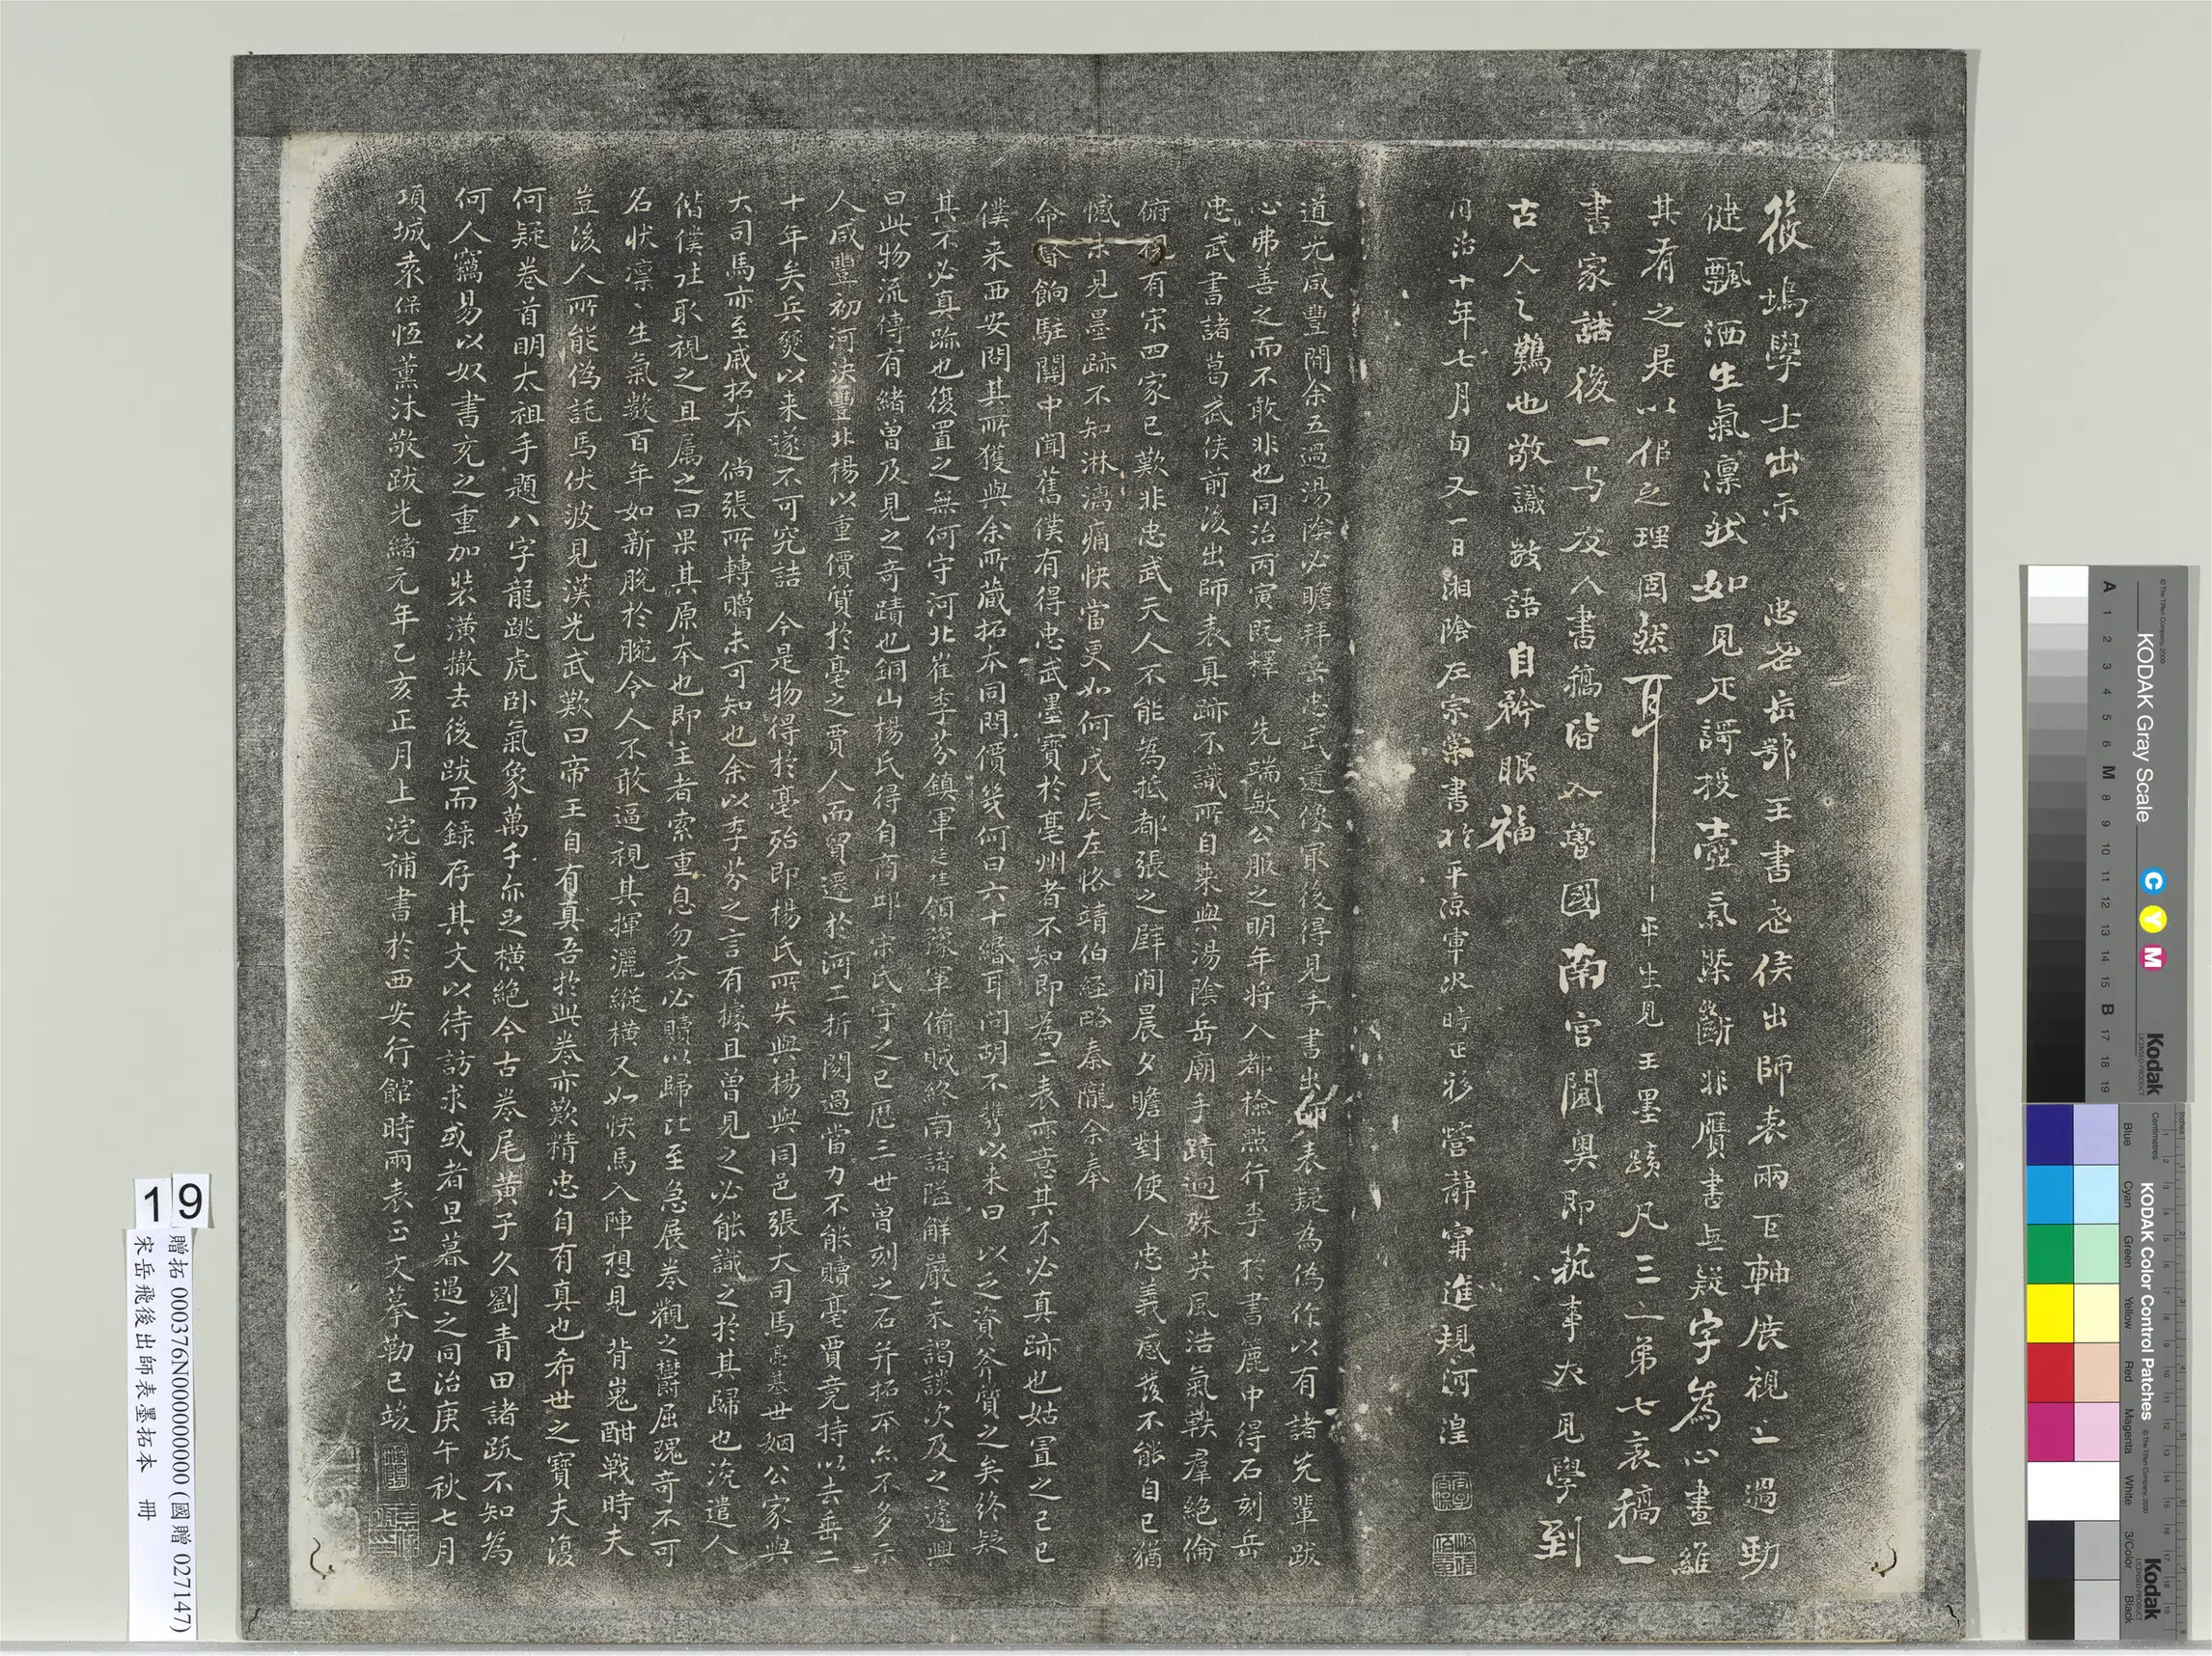 筱塢學士出示 忠武岳鄂王書武侯出師表兩巨軸展視之過勁
健飄洒生氣凜然如見正謂投壺氣槩斷非贋書無疑字為心畫維
其有之是以佀之理固然耳平生見王墨蹟凡三一弟七表稿一
書家誥後一与友人書稿皆入魯國南宮閫奥即萟事大見學到
古人之難也敬識數語自矜眼福
同治十年七月旬又一日湘陰左宗棠書於平涼軍次時正移營靜甯進規河湟
道光咸豐間余五過湯陰必瞻拜岳忠武遺像最後得見手書出師表疑為偽作以有諸先輩跋
心弗善之而不敢非也同治丙寅既釋 先端敏公服之明年将入都檢點行李於書簏中得石刻岳
忠武書諸葛武侯前後出師表真跡不識所自来與湯陰岳廟手蹟迥殊英風浩氣軼羣絕倫
俯視有宋四家已歎非忠武天人不能為抵都張之壁間晨夕瞻對使人忠義感發不能自已猶
憾未見墨跡不知淋漓痛快當更如何戊辰左恪靖伯經略秦隴余奉
命督餉駐關中聞舊僕有得忠武墨寶於亳州者不知即為二表亦意其不必真跡也姑置之己巳
僕来西安問其所獲與余所藏拓本同問價幾何曰六十緡耳問胡不攜以来曰 以之資斧質之矣終疑
其不必真跡也復置之無何守河北崔季芬鎮軍廷桂領豫軍備賊終南諸隘解嚴来謁談次及之遽興
曰此物流傳有緒曾及見之奇蹟也銅山楊氏得自商邱宋氏守之已歷三世曾刻之石并拓本亦不多示
人咸豐初河決豐北楊以重價質於亳之賈人而貿遷於河工折閱過當力不能贖亳賈竟持以去垂二
十年矣兵燹以来遂不可究詰 今是物得於亳殆即楊氏所失與楊與同邑張大司馬亮基世姻公家與
大司馬亦至戚拓本 倘張所轉贈未可知也余以季芬之言有據且曾見之必能識之於其歸也浼遣人
偕僕往取視之且属之曰果其原本也即主者索重息勿吝必贖以歸比至急展卷觀之欝屈瑰奇不可
名状凜〻生氣数百年如新脫於腕令人不敢逼視其揮灑縱横又如快馬入陣想見 背嵬酣戰時夫
豈後人所能偽託馬伏波見漢光武歎曰帝王自有真吾於此卷亦歎精忠自有真也希世之寶夫復
何疑卷首明太祖手題八字龍跳虎卧氣象萬千亦足横絕今古卷尾黄子久劉青田諸跋不知為
何人竊易以奴書充之重加装潢撤去後跋而録存其文以待訪求或者旦暮遇之同治庚午秋七月
項城袁保恒薰沐敬跋光緒元年乙亥正月上浣補書於西安行館時兩表正文摹勒已竣
19
贈拓 000376N000000000 (國贈 027147)
宋岳飛後出師表墨拓本 冊
KODAK Gray Scale
C Y M
Kodak
A 1 2 3 4 5 6 M 8 9 10 11 12 13 14 15 B 17 18 19
KODAK Color Control Patches
Blue Cyan Green Yellow Red Magenta White 3/Color Black
Kodak